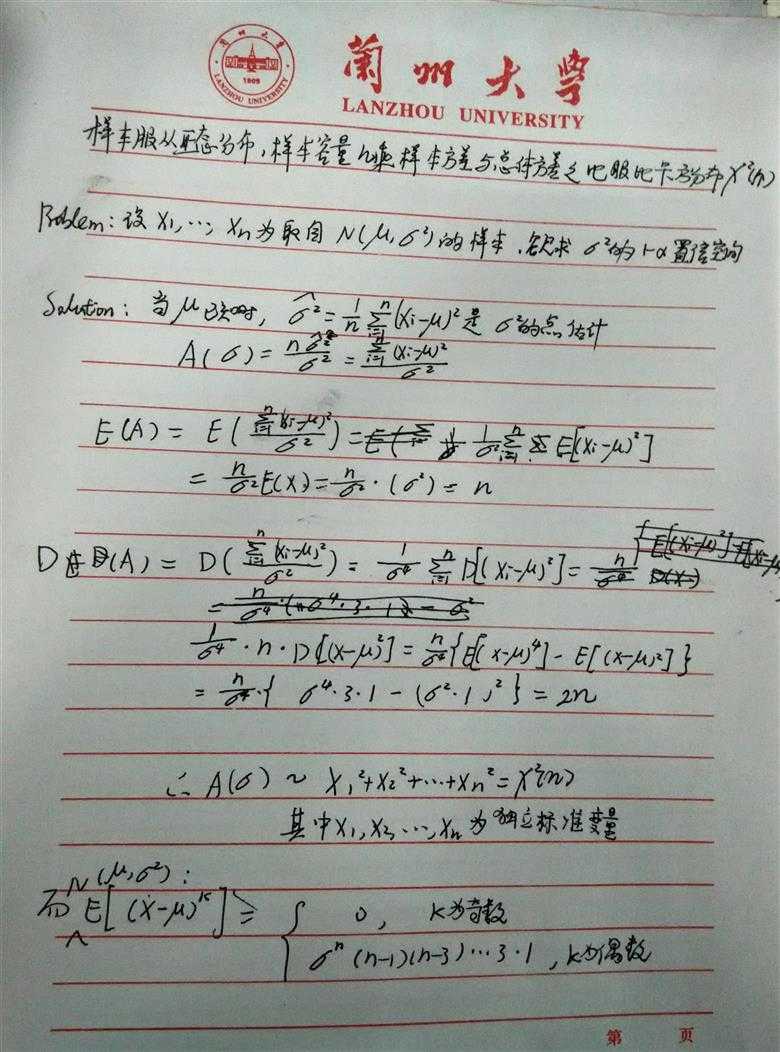 兰州大学
LANZHOU UNIVERSITY
1909
蘭州大学
LANZHOU UNIVERSITY
样本服从正态分布,样本容量n乘样本方差与总体方差之比服比卡方分布χ²(n)
Problem: 设 X₁,…, Xn为取自 N(μ,σ²)的样本,欲求 σ²的1-α置信空间
Solution: 当μ已知时, σ̂²=1/n Σ_{i=1}^{n}(Xi-μ)²是 σ²的点估计
A(σ) = nσ̂²/σ² = Σ_{i=1}^{n}(Xi-μ)²/σ²
E(A) = E(Σ_{i=1}^{n}(Xi-μ)²/σ²) = 1/σ² Σ_{i=1}^{n} E[(Xi-μ)²]
= n/σ² E(X) = n/σ² · (σ²) = n
D(A) = D(Σ_{i=1}^{n}(Xi-μ)²/σ²) = 1/σ⁴ Σ_{i=1}^{n} D[(Xi-μ)²] = n/σ⁴
1/σ⁴ · n · D[(X-μ)²] = n/σ⁴ {E[(X-μ)⁴] - E[(X-μ)²]}
= n/σ⁴ · { σ⁴·3·1 - (σ²·1)² } = 2n
∴ A(σ) ~ X₁²+X₂²+…+Xn² = χ²(n)
其中X₁,X₂,…,Xn为独立标准变量
N(μ,σ²):
而 E[(X-μ)ᵏ] = { 0, k为奇数
σⁿ(n-1)(n-3)…3·1, k为偶数
第 页